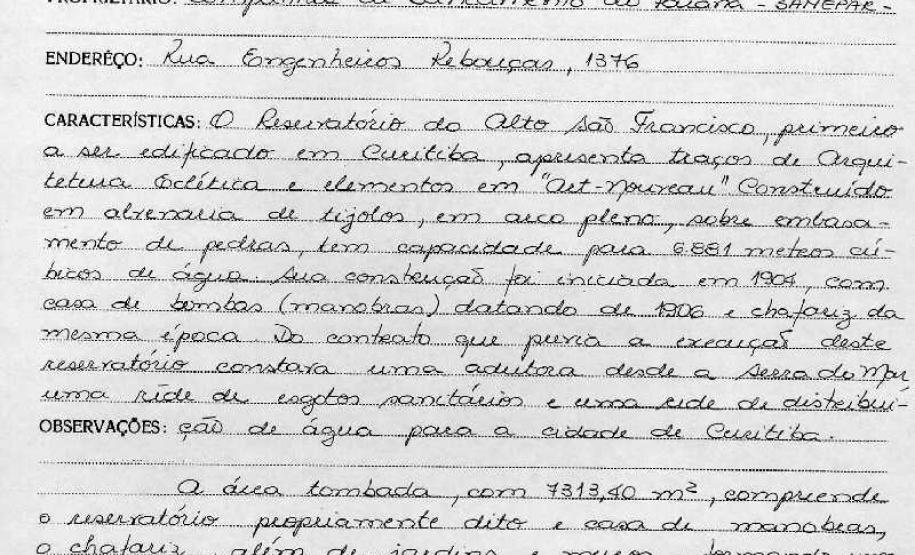 PROPRIETÁRIO: Companhia de Saneamento do Paraná - SANEPAR -
ENDERÊÇO: Rua Engenheiros Rebouças, 1376
CARACTERÍSTICAS: O Reservatório do Alto São Francisco, primeiro
a ser edificado em Curitiba, apresenta traços de Arqui-
tetura Eclética e elementos em "Art-Nouveau" Construído
em alvenaria de tijolos, em arco pleno, sobre embasa-
mento de pedras, tem capacidade para 6.881 metros cú-
bicos de água. Sua construção foi iniciada em 1904, com
casa de bombas (manobras) datando de 1906 e chafariz da
mesma época. Do contrato que previa a execução deste
reservatório constava uma adutora desde a Serra do Mar
uma rêde de esgotos sanitários e uma rede de distribui-
OBSERVAÇÕES: ção de água para a cidade de Curitiba.
A área tombada, com 7313,40 m², compreende
o reservatório propriamente dito e casa de manobras,
o chafariz, além de jardins e muros, formando